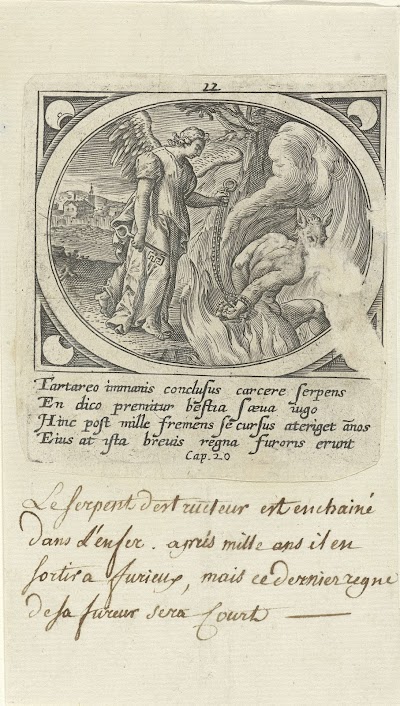 22
Tartareo immanis conclusus carcere serpens
En dico premitur bestia sæva iugo
Hinc post mille fremens se cursus ateriget ãnos
Eius at ista brevis regna furoris erunt
Cap. 20
Le serpent destructeur est enchainé
dans l'enfer. aprés mille ans il en
sortira furieux, mais ce dernier regne
de sa fureur sera Court